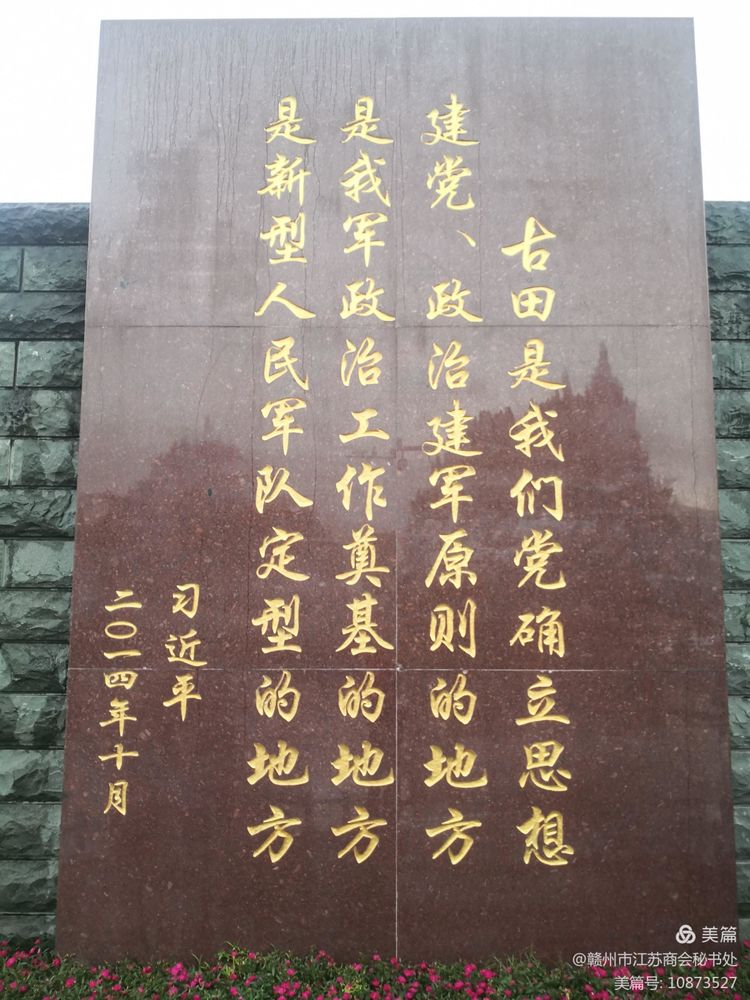 古田是我们党确立思想
建党、政治建军原则的地方
是我军政治工作奠基的地方
是新型人民军队定型的地方
习近平
二〇一四年十月
美篇
@赣州市江苏商会秘书处
美篇号: 10873527